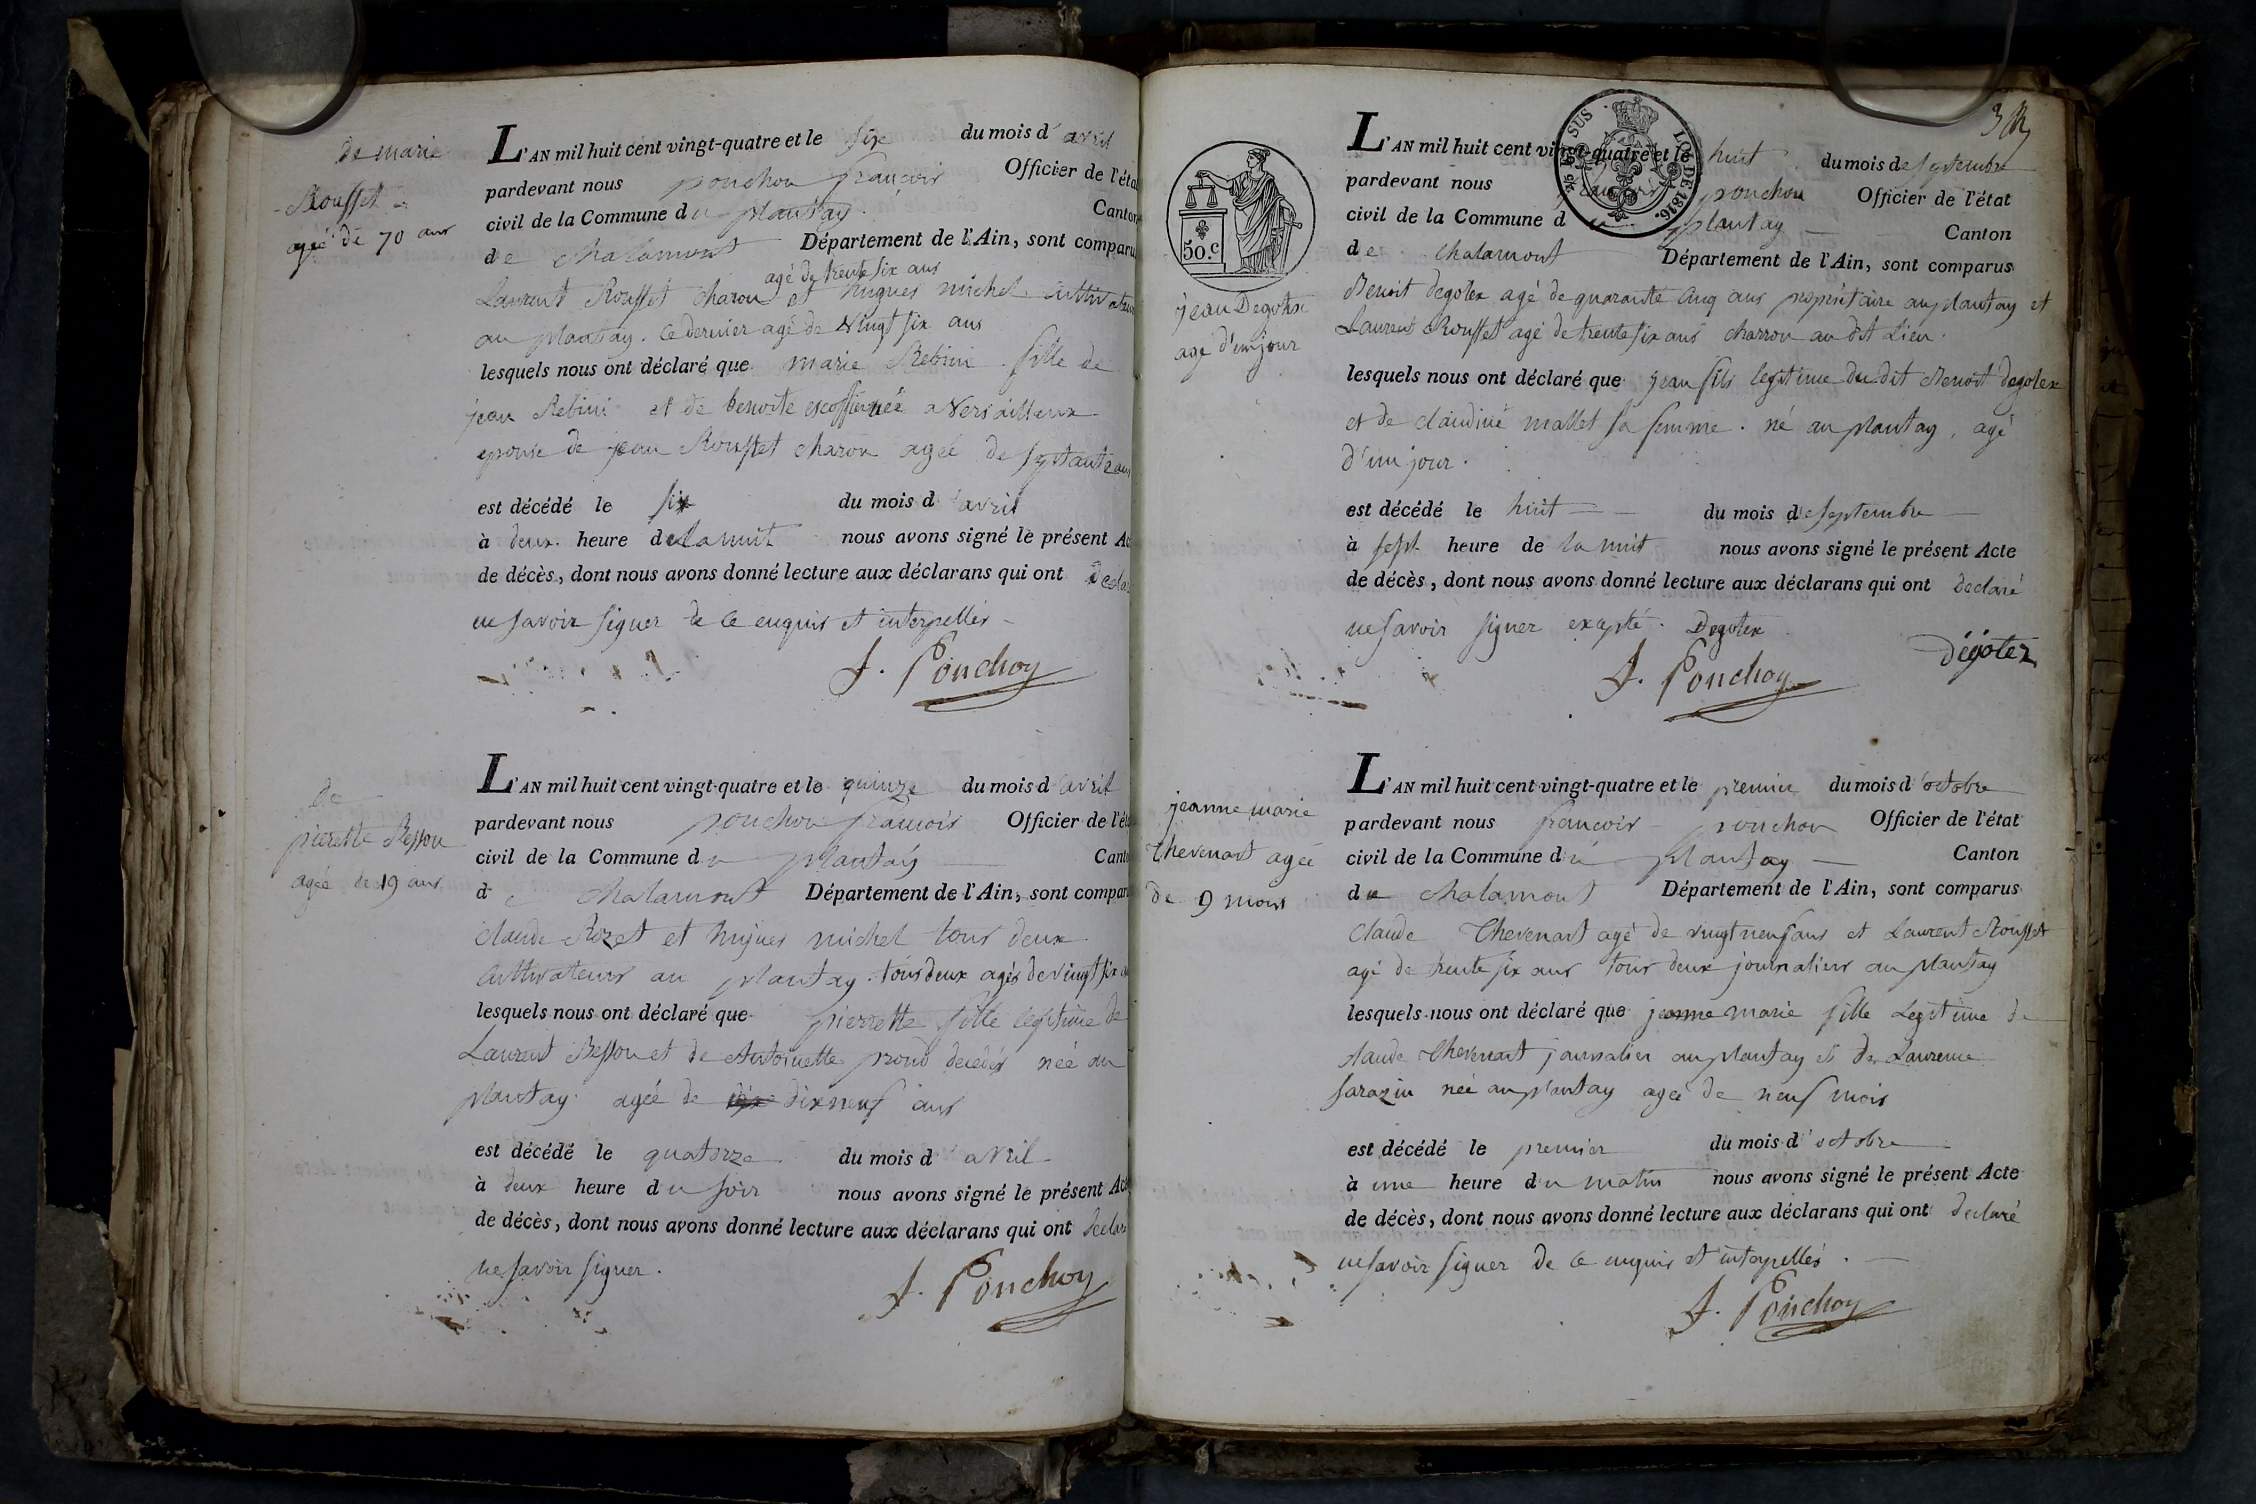 de marie
Rousset
agée de 70 ans
L'AN mil huit cent vingt-quatre et le six du mois d'avril
pardevant nous ponchon françois Officier de l'éta
civil de la Commune du plantay Canton
de chalamont Département de l'Ain, sont comparu
agé de trente six ans
Laurent Rousset charon et hugues michel cultivateur
au plantay. ce dernier agé de vingt six ans
lesquels nous ont déclaré que marie Rebini fille de
jean Rebini et de benoite escoffier née a Versailleux
epouse de jean Rousset charon agée de septante ans
est décédé le six du mois d'avril
à deux heure de la nuit nous avons signé le présent Ac
de décès, dont nous avons donné lecture aux déclarans qui ont declar
ne savoir signer de ce enquis et interpellés
f. Ponchon
de
pierette Besson
agée de 19 ans
L'AN mil huit cent vingt-quatre et le quinze du mois d'avril
pardevant nous ponchon françois Officier de l'éta
civil de la Commune du plantay Canto
de chalamont Département de l'Ain, sont compar
claude Rozet et hugues michel tous deux
cultivateurs au plantay. tous deux agés de vingt six a
lesquels nous ont déclaré que pierrette fille legitime de
Laurent Besson et de Antoinette proud decedés née au
plantay agée de dixneuf ans
est décédé le quatorze du mois d avril
à deux heure du soir nous avons signé le présent Act
de décès, dont nous avons donné lecture aux déclarans qui ont declar
ne savoir signer.
f. Ponchon
SUS LOI DE 1816.
50.c
jean Degotex
age d'un jour
L'AN mil huit cent vingt-quatre et le huit du mois de septembre
pardevant nous françois ponchon Officier de l'état
civil de la Commune du plantay Canton
de chalamont Département de l'Ain, sont comparus
Benoit degotex agé de quarante cinq ans propriétaire au plantay et
Laurent Rousset agé de trente six ans charron au dit Lieu.
lesquels nous ont déclaré que jean fils legitime du dit Benoit degotex
et de claudine mallet sa femme. né au plantay, agé
d'un jour.
est décédé le huit du mois de septembre
à sept heure de la nuit nous avons signé le présent Acte
de décès, dont nous avons donné lecture aux déclarans qui ont declaré
ne savoir signer exepté. Degotex
f. Ponchon dégotez
jeanne marie
Thevenart agée
de 9 mois
L'AN mil huit cent vingt-quatre et le premier du mois d'octobre
pardevant nous françois ponchon Officier de l'état
civil de la Commune du plantay Canton
de chalamont Département de l'Ain, sont comparus
claude Thevenart agé de vingt neuf ans et Laurent Rousset
agé de trente six ans tous deux journaliers au plantay
lesquels nous ont déclaré que jeanne marie fille Legitime de
claude Thevenart journalier au plantay et de Laurence
sarazin née au plantay agée de neuf mois
est décédé le premier du mois d'octobre
à une heure du matin nous avons signé le présent Acte
de décès, dont nous avons donné lecture aux déclarans qui ont declaré
ne savoir signer de ce enquis et interpellés.
f. Ponchon